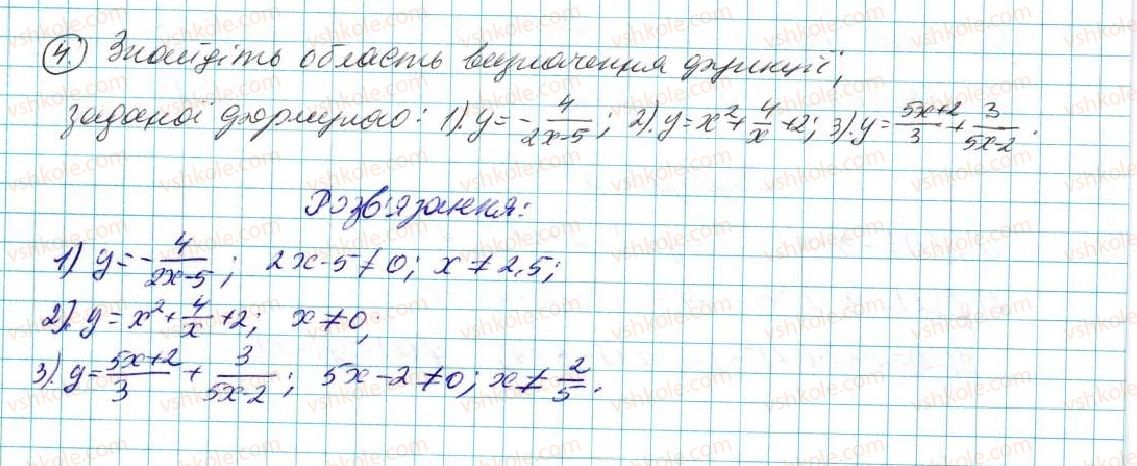 4. Знайдіть область визначення функції,
заданої формулою: 1). y = -4/(2x-5); 2). y = x² + 4/x + 2; 3). y = (5x+2)/3 + 3/(5x-2).
Розв'язання:
1) y = -4/(2x-5); 2x-5≠0; x≠2,5;
2). y = x² + 4/x + 2; x≠0;
3). y = (5x+2)/3 + 3/(5x-2); 5x-2≠0; x≠2/5.
vshkole.com